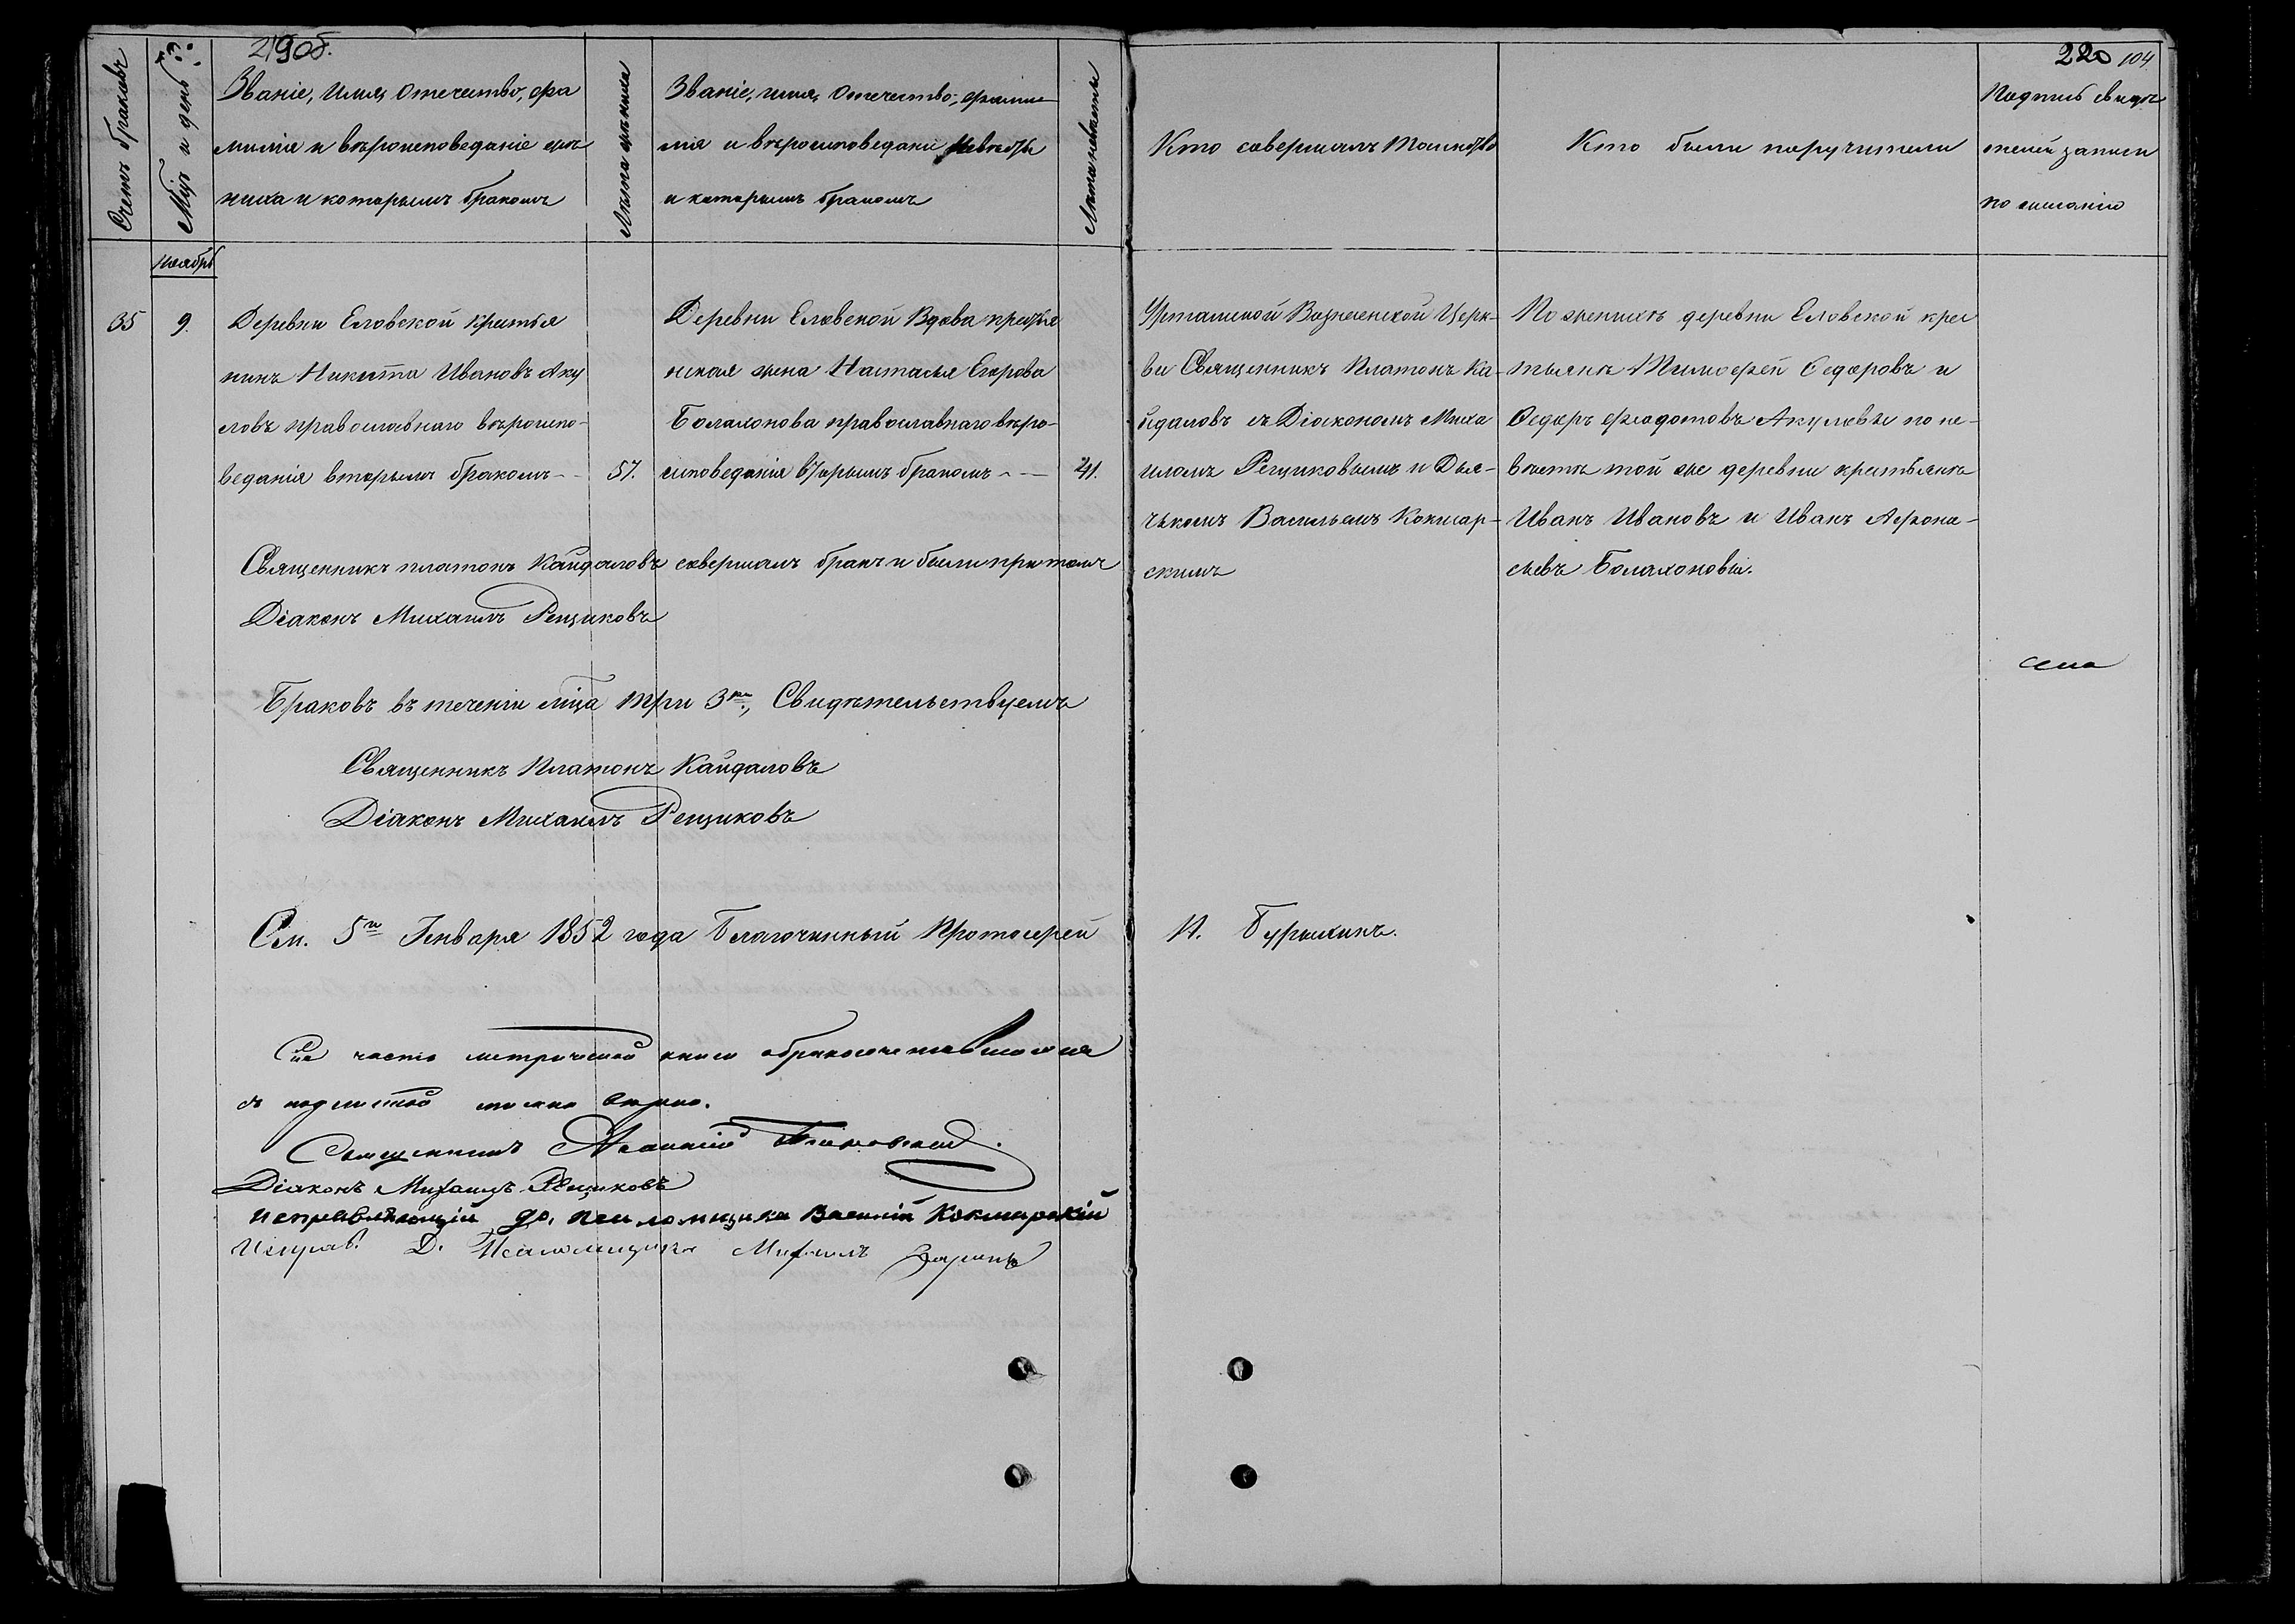 219об.
220 104
Счетъ браковъ
Мѣц и день
Званіе, Имя, Отечество, фа
милія и вѣроисповеданіе же
ниха и которымъ бракомъ
Лѣта жениха
Званіе, имя, Отечество, фами
лія и вѣроисповедани невѣсты
и которымъ бракомъ
Лѣта невѣсты
Кто совершалъ Таинство
Кто были поручители
Подпись свидѣ
телей записи
по желанію
Ноябрь
35
9.
Деревни Еловской крестья
нинъ Никита Ивановъ Аку
ловъ православнаго вѣроиспо-
веданія вторымъ бракомъ - -
57.
Деревни Еловской Вдова крестья
нская жена Настасья Егорова
Болахонова православнаго вѣро-
исповеданія вторымъ бракомъ - -
41.
Урташской Вознесенской Церк-
ви Священникъ Платонъ Ка-
йдаловъ съ Діакономъ Миха
иломъ Рещиковымъ и Дья-
чькомъ Васильемъ Кокшар-
скимъ
По женихѣ деревни Еловской крес
тьяне Тимофей Федоровъ и
Федоръ Федотовъ Акуловы по не-
вѣсте той же деревни крестьяне
Иванъ Ивановъ и Иванъ Афона-
сьевъ Болахоновы.
Священникъ платонъ Кайдаловъ совершалъ бракъ и были при томъ
Діаконъ Михаилъ Рещиковъ
Браковъ въ теченіи мѣца три 3., Свидѣтельствуемъ
Священникъ Платонъ Кайдаловъ
Діаконъ Михаилъ Рещиковъ
См. 5го Генваря 1852 года Благочинный Протоіерей
И. Бурыхинъ.
Сія часть метрической книги о бракосочетавшихся
съ подлинной вѣрна.
Священникъ
Діаконъ Михаилъ Рещиковъ
исправляющій до. псаломщика Василій Кокшарскій
Исправ. Д. Псаломщика Михаилъ